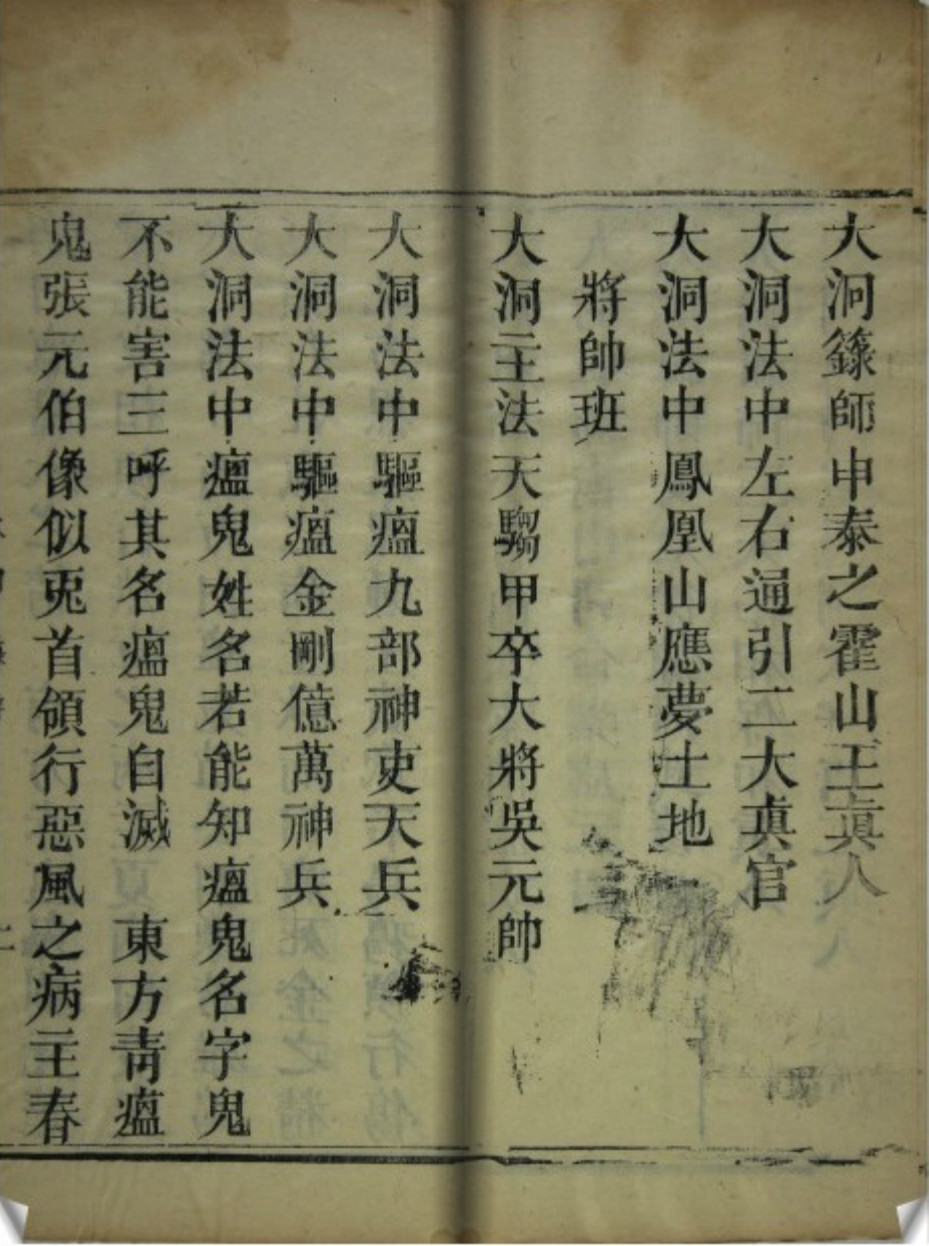 大洞籙師申泰之霍山王真人
大洞法中左右通引二大真官
大洞法中鳳凰山應夢土地
將帥班
大洞主法天騶甲卒大將吳元帥
大洞法中驅瘟九部神吏天兵
大洞法中驅瘟金剛億萬神兵
大洞法中瘟鬼姓名若能知瘟鬼名字鬼
不能害三呼其名瘟鬼自滅　東方青瘟
鬼張元伯像似兎首領行惡風之病主春